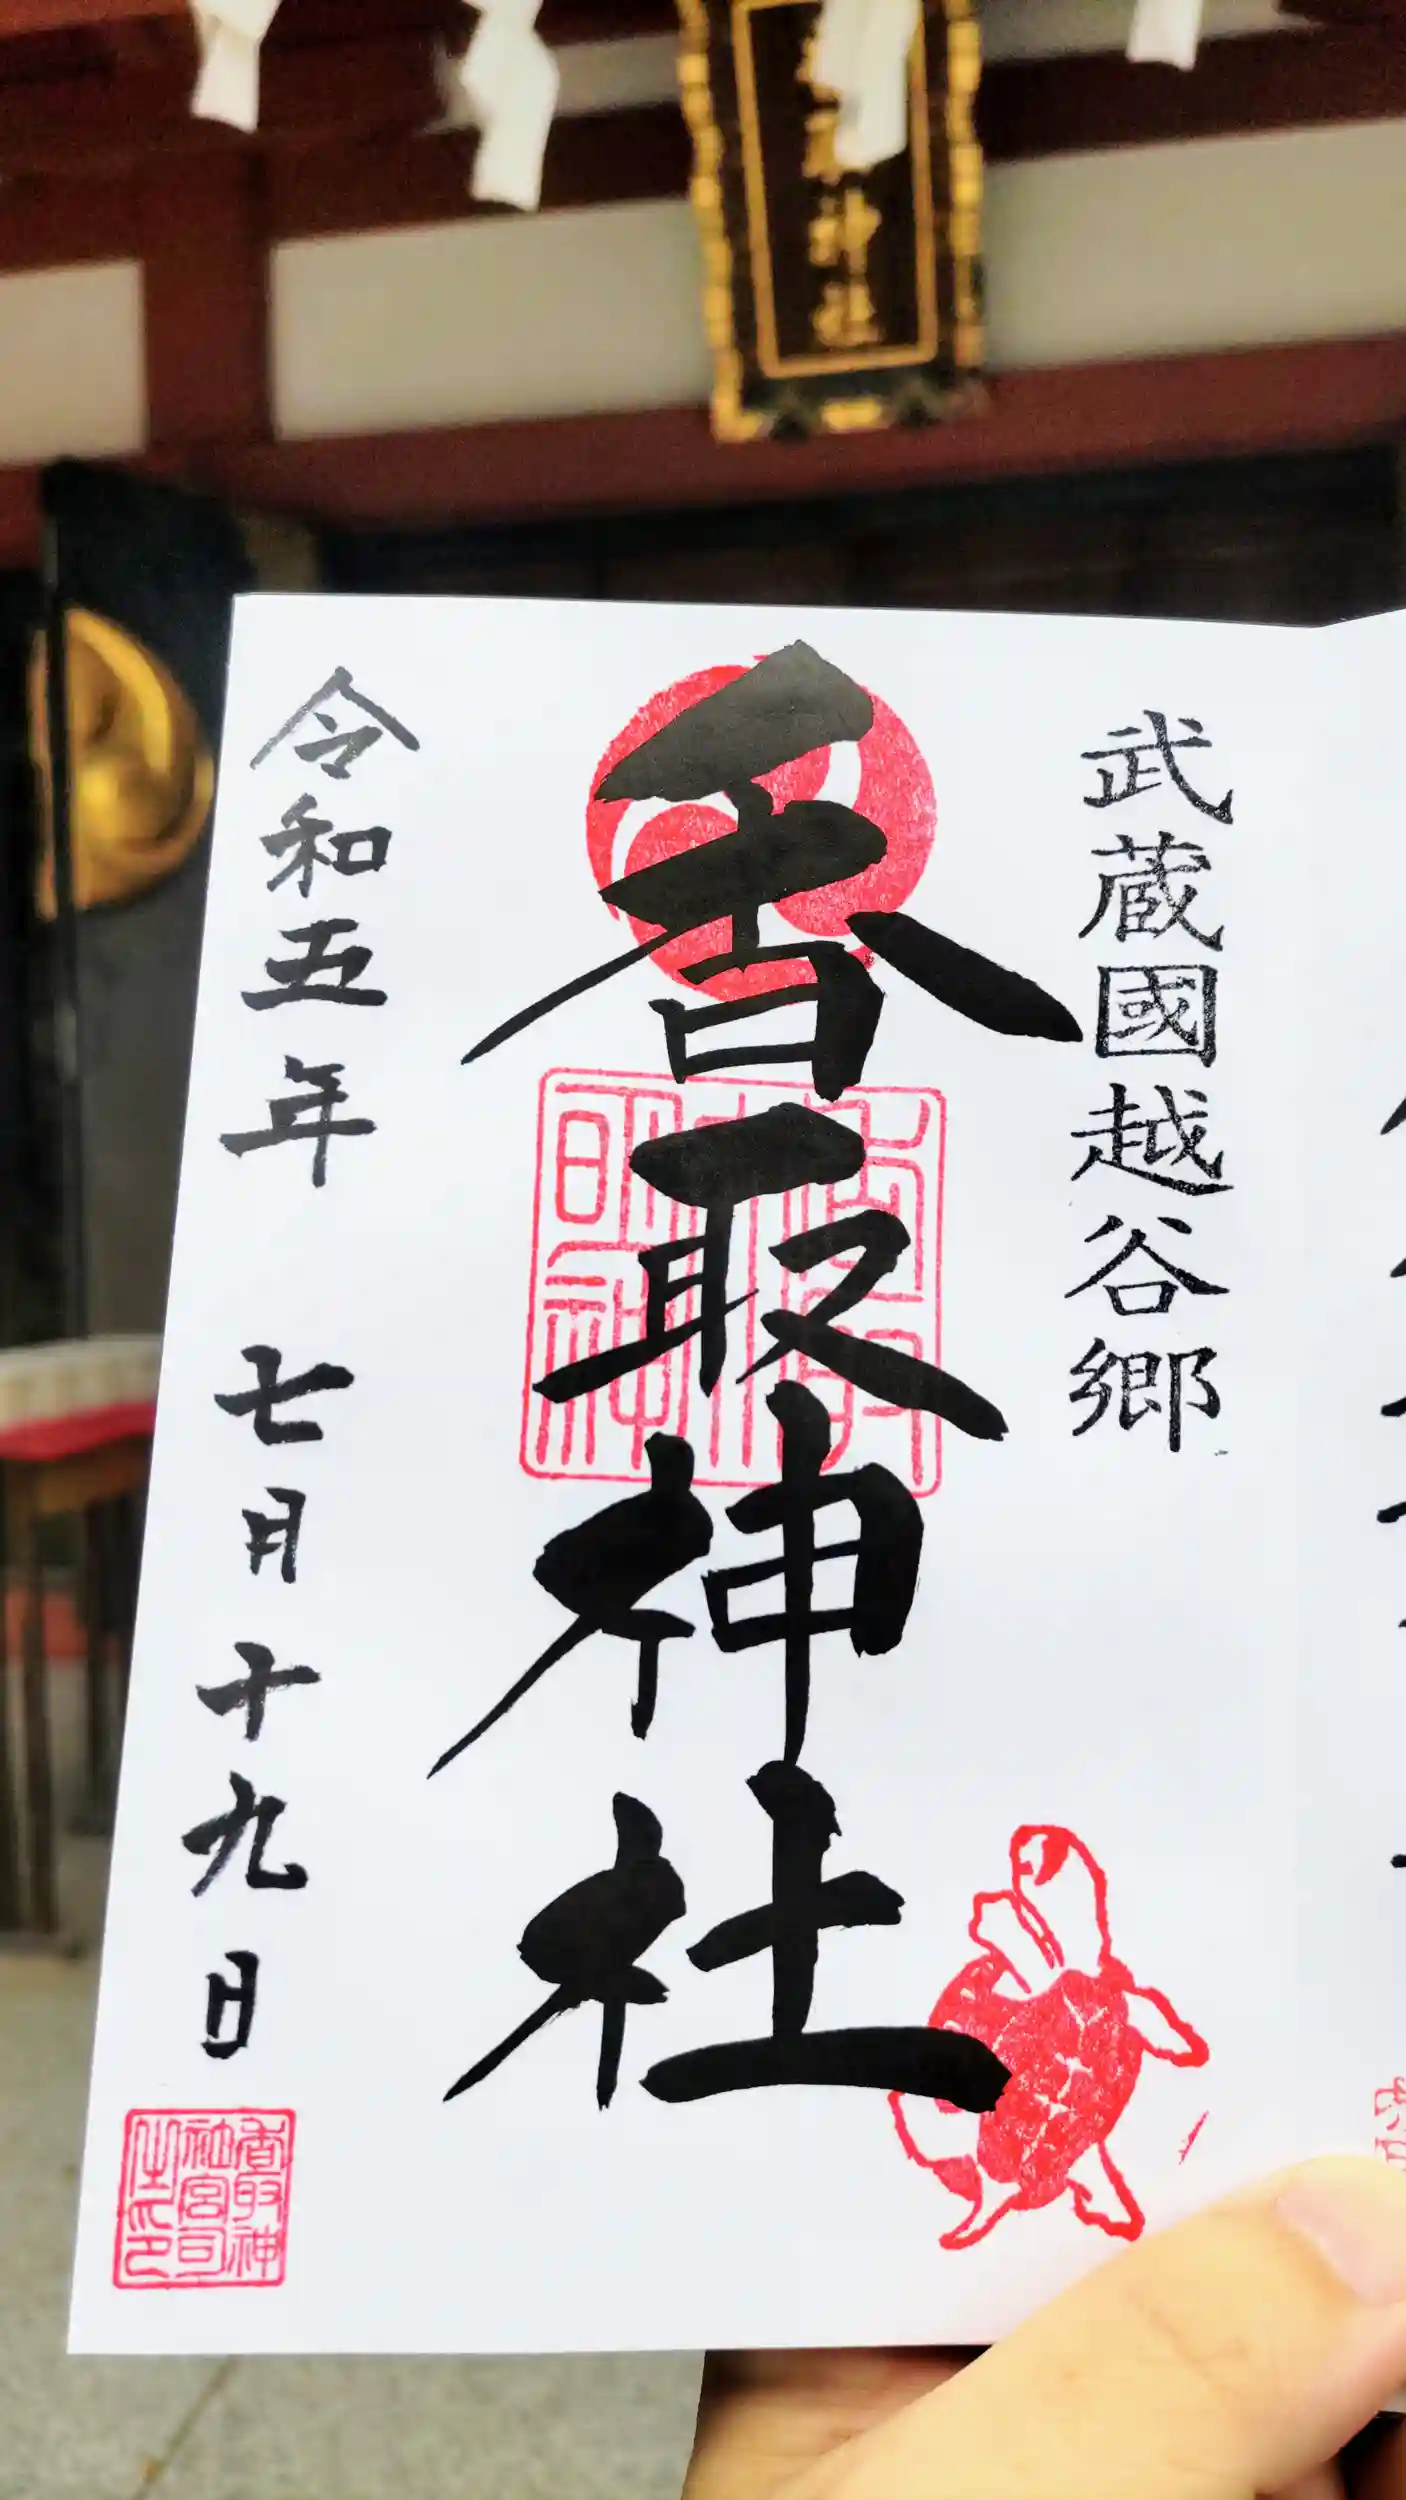 武蔵國越谷郷
香取神社
令和五年 七月十九日
香取神
社宮司
之印
神社